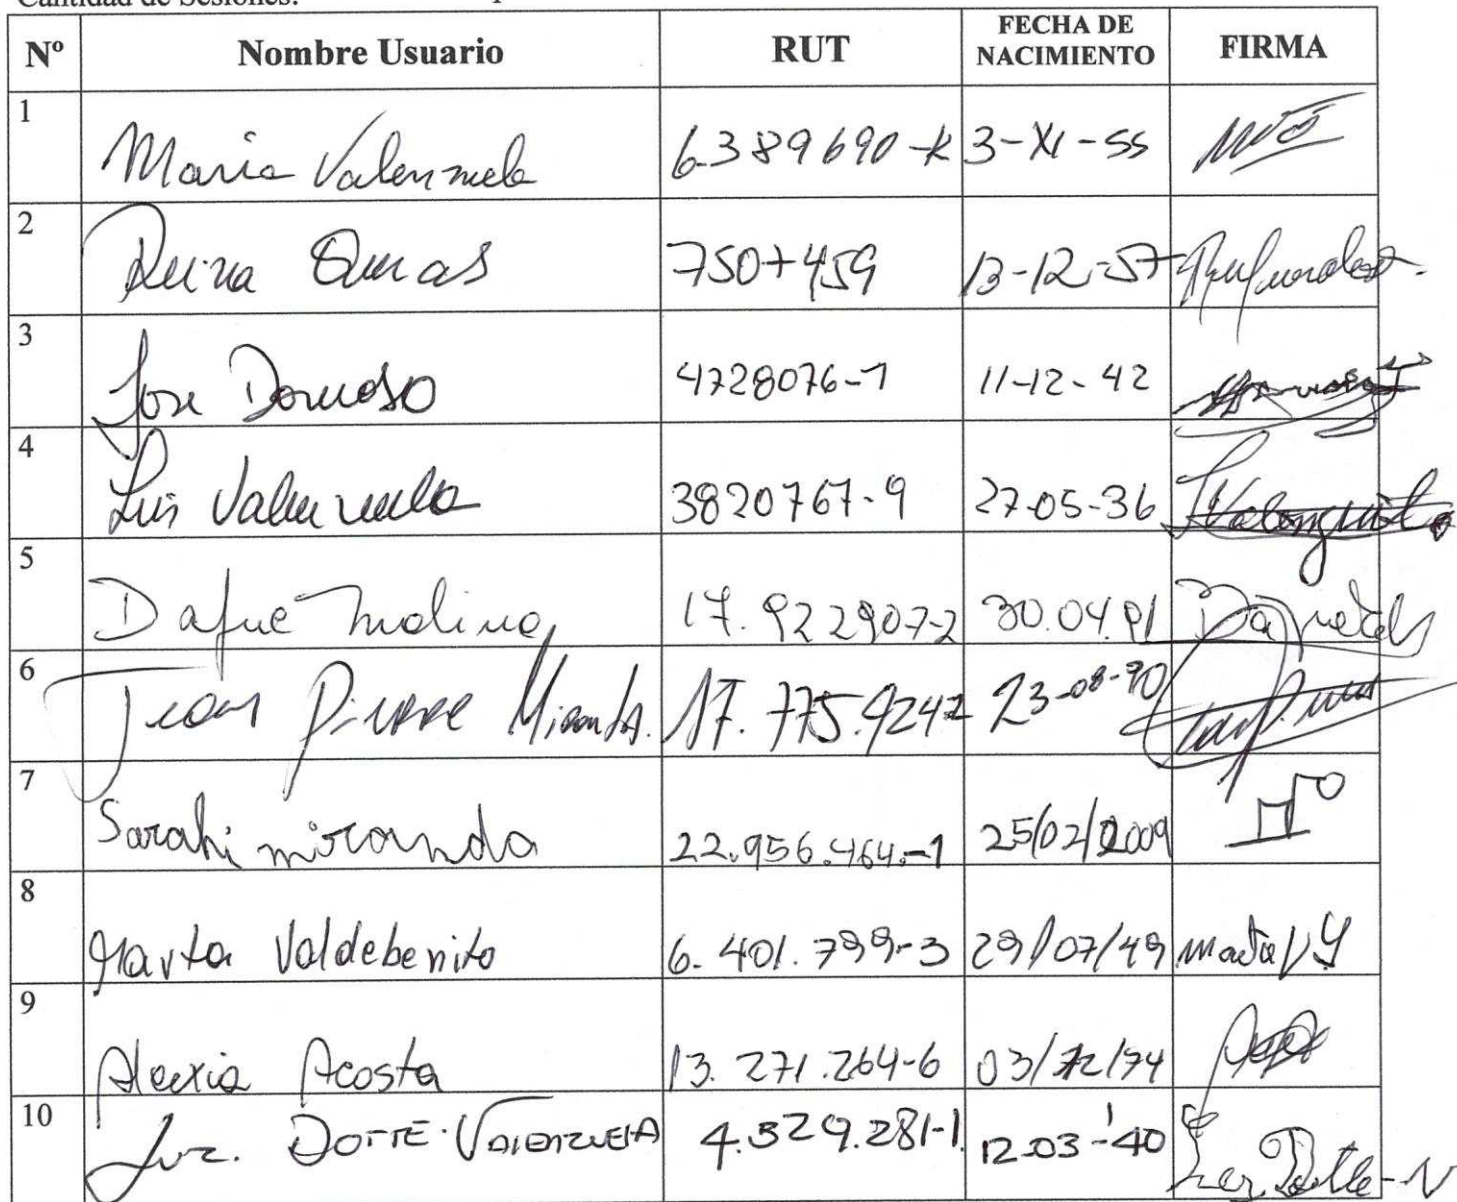 Cantidad de Sesiones:
Nº Nombre Usuario RUT FECHA DE NACIMIENTO FIRMA
1 Maria Valenzuela 6.389690-K 3-XI-55
2 Reina 7507459 13-12-57
3 Jose Donoso 4728076-1 11-12-42
4 Luis Valenzuela 3820767-9 27-05-36 Valenzuela
5 Dafne Molina 17.922907-2 30.04.91
6 Jean Pierre Miranda. 17.775.9247 23-08-90
7 Sarahi miranda 22.956.464.-1 25/02/2009
8 Marta Valdebenito 6.401.799-3 29/07/49 Marta V Y
9 Alexia Acosta 13.271.264-6 03/12/74
10 Luz. DOTTE-VALENZUELA 4.329.281-1 12-03-'40 Luz Dotte-V